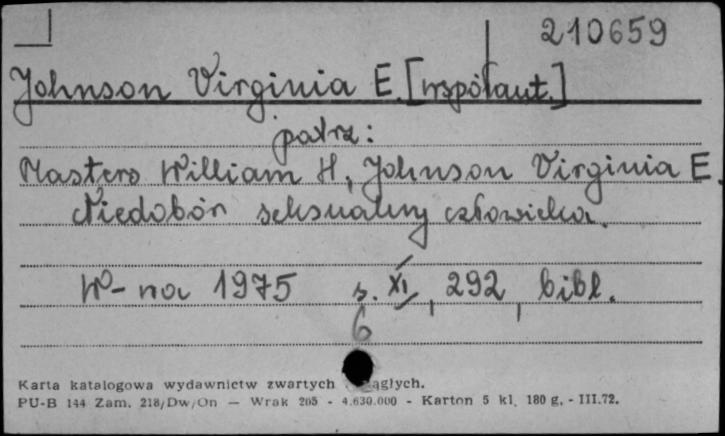 210659
Johnson Virginia E. [współaut.]
patrz:
Masters William H., Johnson Virginia E.
Niedobór seksualny człowieka.
W-na 1975 s. XI, 292, bibl.
6
Karta katalogowa wydawnictw zwartych ągłych.
PU-B 144 Zam. 218/Dw/On — Wrak 205 - 4.630.000 - Karton 5 kl. 180 g. - III.72.